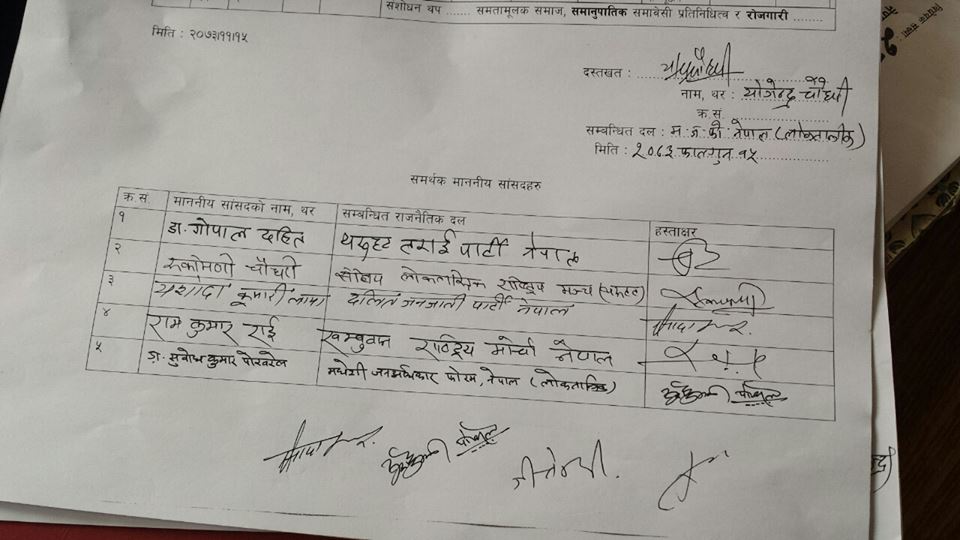 संशोधन थप ........ समतामूलक समाज, समानुपातिक समावेसी प्रतिनिधित्व र रोजगारी ........
मिति : २०७३।११।१५
दस्तखत :
नाम, थर : योगेन्द्र चौधरी
क्र.सं.
सम्बन्धित दल : म. ज. फो. नेपाल (लोकतान्त्रिक)
मिति : २०७३ फाल्गुन १५
समर्थक माननीय सांसदहरु
क्र.सं. माननीय सांसदको नाम, थर सम्बन्धित राजनैतिक दल हस्ताक्षर
१ डा. गोपाल दहित थरुहट तराई पार्टी नेपाल
२ रुकमिणी चौधरी संघिय लोकतान्त्रिक राष्ट्रिय मञ्च (थरुहट)
३ यशोदा कुमारी लामा दलित जनजाती पार्टी नेपाल
४ राम कुमार राई खम्बुवान राष्ट्रिय मोर्चा नेपाल
५ डा. सुबोध कुमार पोखरेल मधेशी जनअधिकार फोरम, नेपाल (लोकतान्त्रिक)